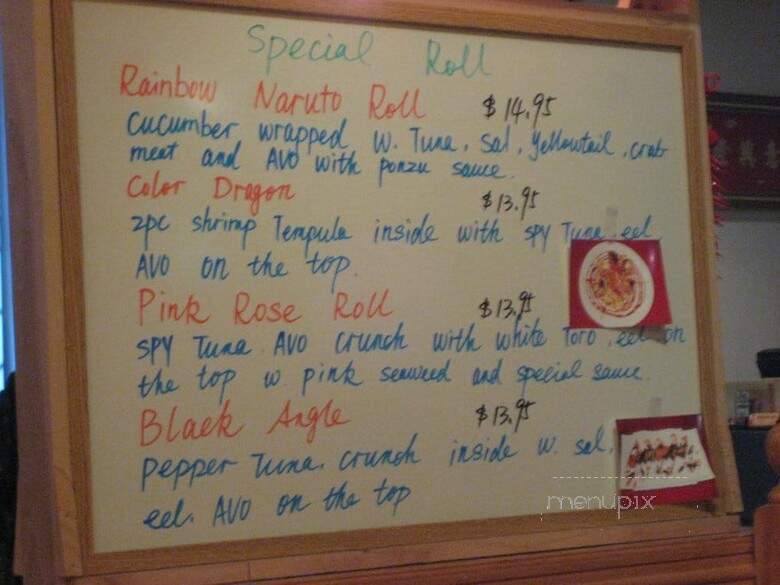 Special Roll
Rainbow Naruto Roll $14.95
cucumber wrapped w. Tuna, sal, yellowtail, crab
meat and AVO with ponzu sauce.
Color Dragon $13.95
2pc shrimp Tempula inside with spy Tuna eel
AVO on the top.
Pink Rose Roll $13.95
SPY Tuna AVO crunch with white Toro, eel on
the top w. pink seaweed and special sauce.
Black Angle $13.95
pepper Tuna, crunch inside w. sal,
eel. AVO on the top
menupix